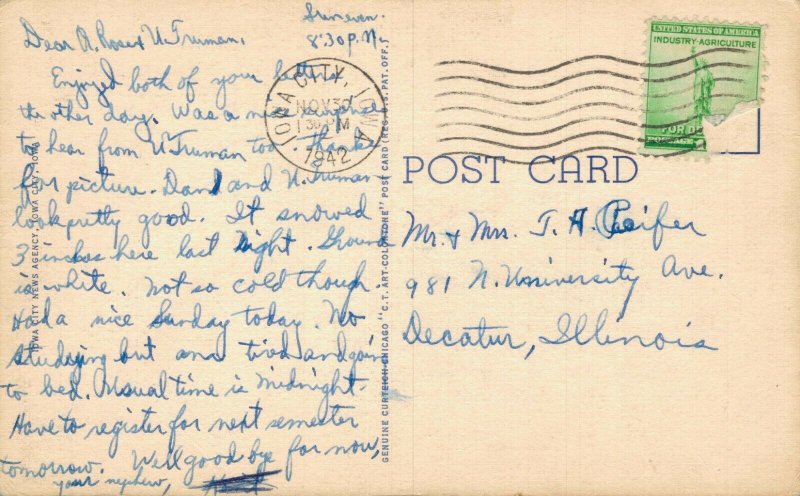 Sun even.
8:30 P.M.
Dear A. Rose & U. Truman,
Enjoyed both of your letters
the other day. Was a nice surprise
to hear from U. Truman too. Thanks
for picture. Dan and U. Truman
look pretty good. It snowed
3 inches here last night. Ground
is white. Not so cold though.
Had a nice Sunday today. No
studying but am tired and goin
to bed. Usual time is Midnight.
Have to register for next semester
tomorrow. Well good bye for now,
your nephew,
IOWA CITY, IOWA
NOV 30
1 30 PM
1942
UNITED STATES OF AMERICA
INDUSTRY-AGRICULTURE
FOR DE
POSTAGE
POST CARD
Mr. & Mrs. T. H. Peifer
981 N. University Ave.
Decatur, Illinois
IOWA CITY NEWS AGENCY, IOWA CITY, IOWA
GENUINE CURTEICH-CHICAGO "C.T. ART-COLORTONE" POST CARD (REG. U.S. PAT. OFF.)